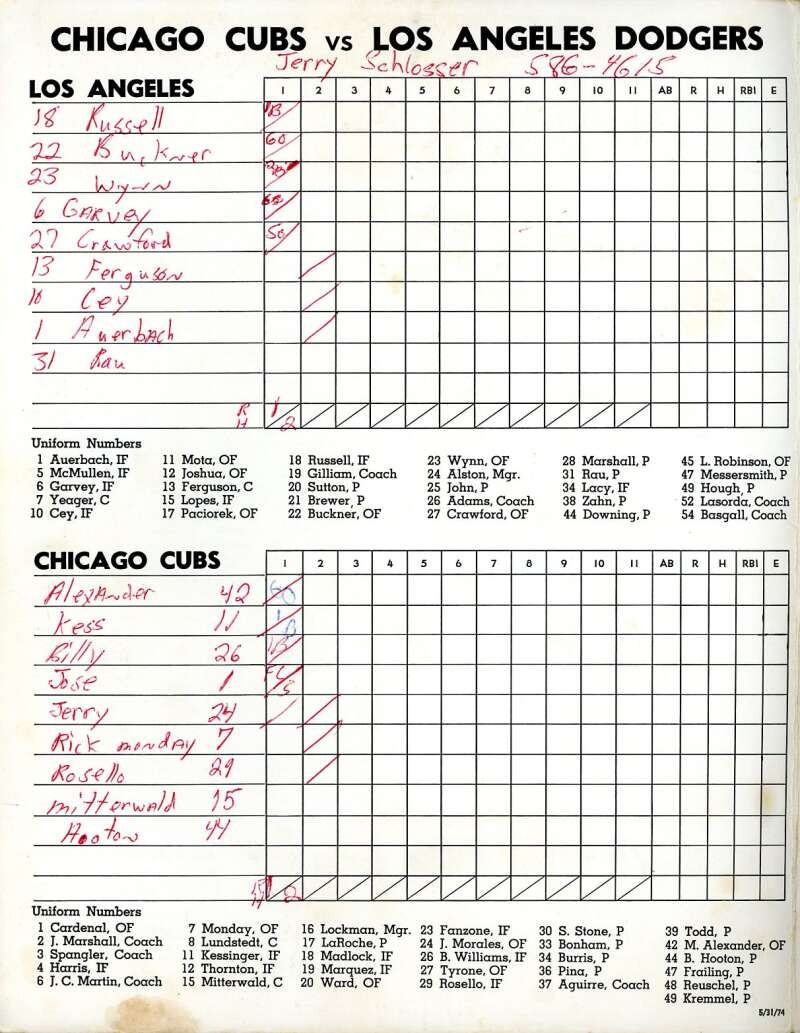 CHICAGO CUBS VS LOS ANGELES DODGERS
Jerry Schlosser 586-4615
LOS ANGELES 1 2 3 4 5 6 7 8 9 10 11 AB R H RBI E
18 Russell 1B
22 Buckner 60
23 Wynn 2B
6 GARVEY
27 Crawford 50
13 Ferguson
10 Cey
1 Auerbach
31 Rau
R 1
H 2
Uniform Numbers
1 Auerbach, IF 11 Mota, OF 18 Russell, IF 23 Wynn, OF 28 Marshall, P 45 L. Robinson, OF
5 McMullen, IF 12 Joshua, OF 19 Gilliam, Coach 24 Alston, Mgr. 31 Rau, P 47 Messersmith, P
6 Garvey, IF 13 Ferguson, C 20 Sutton, P 25 John, P 34 Lacy, IF 49 Hough, P
7 Yeager, C 15 Lopes, IF 21 Brewer, P 26 Adams, Coach 38 Zahn, P 52 Lasorda, Coach
10 Cey, IF 17 Paciorek, OF 22 Buckner, OF 27 Crawford, OF 44 Downing, P 54 Basgall, Coach
CHICAGO CUBS 1 2 3 4 5 6 7 8 9 10 11 AB R H RBI E
Alexander 42
Kess 11 1B
Billy 26 1B
Jose 1
Jerry 24
Rick monday 7
Rosello 29
mitterwald 15
Hooton 44
2
Uniform Numbers
1 Cardenal, OF 7 Monday, OF 16 Lockman, Mgr. 23 Fanzone, IF 30 S. Stone, P 39 Todd, P
2 J. Marshall, Coach 8 Lundstedt, C 17 LaRoche, P 24 J. Morales, OF 33 Bonham, P 42 M. Alexander, OF
3 Spangler, Coach 11 Kessinger, IF 18 Madlock, IF 26 B. Williams, IF 34 Burris, P 44 B. Hooton, P
4 Harris, IF 12 Thornton, IF 19 Marquez, IF 27 Tyrone, OF 36 Pina, P 47 Frailing, P
6 J. C. Martin, Coach 15 Mitterwald, C 20 Ward, OF 29 Rosello, IF 37 Aguirre, Coach 48 Reuschel, P
49 Kremmel, P
5/31/74